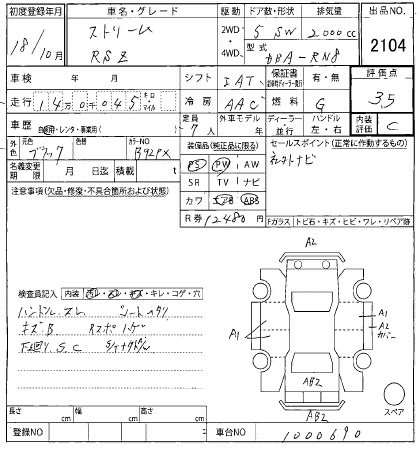 初度登録年月 車名・グレード 駆動 ドア数・形状 排気量 出品NO.
18/10月 ストリーム RSZ 2WD・4WD 5 SW 2000cc 2104
型式 DBA-RN8
車検 年 月 シフト IAT 保証書 有・無 評価点 3.5
走行 14万0045 キロ マイル 冷房 AAC 燃料 G
車歴 自家用・レンタ・事業用( ) 定員 7人 外車モデル 年 ディーラー 並行 ハンドル 左・右 内装評価 C
外色 元色 ブラック 色替 カラーNO B92PX 装備品(純正品に限る) セールスポイント(正常に作動するもの)
PS PW AW
名義変更期限 月 日迄 積載 t SR TV ナビ
注意事項(欠品・修復・不具合箇所および状態) カワ エアB ABS
R券 12480円 Fガラス トビ石・キズ・ヒビ・ワレ・リペア跡
A2
検査員記入 内装 汚レ・スレ・キズ・キレ・コゲ・穴
ハンドルスレ シートヘタリ
キズB
下回りS.C
A1 A1 A2 カバー
AB2
AB2 スペア
長さ cm 幅 cm 高さ cm
登録NO 車台NO 1000690